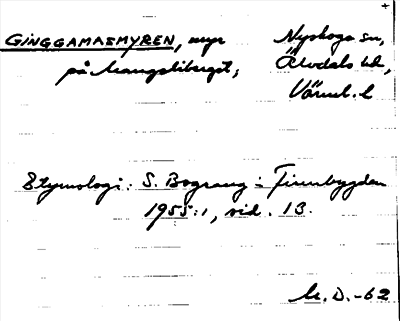 GINGGAMASMYREN, myr Nyskoga sn,
på Mangsliberget, Älvdals hd,
Värml. l
Etymologi: S. Bograng i Finnbygden
1955:1, sid. 13.
M. D. -62